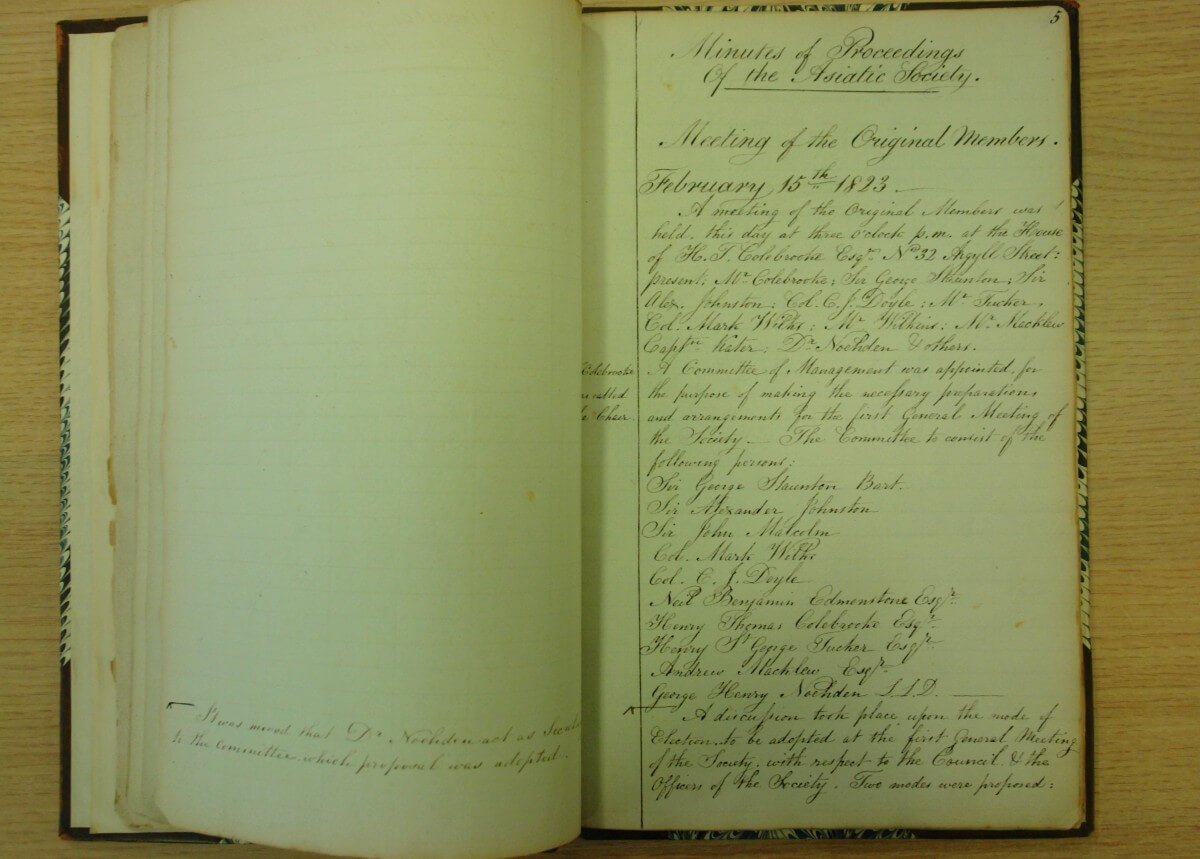 5
Minutes of Proceedings
Of the Asiatic Society.
Meeting of the Original Members.
February, 15th 1823
A meeting of the Original Members was
held, this day at three o'clock p.m. at the House
of H. T. Colebrooke Esqr. No 32 Argyll Street:
present; Mr Colebrooke; Sir George Staunton; Sir
Alex. Johnston; Col. C. J. Doyle; Mr Tucker,
Col. Mark Wilks; Mr Wilkins; Mr Macklew
Captn Kater; Dr Noehden & others.
Colebrooke
called
Chair.
A Committee of Management was appointed, for
the purpose of making the necessary preparations
and arrangements for the first General Meeting of
the Society. The Committee to consist of the
following persons:
Sir George Staunton Bart.
Sir Alexander Johnston
Sir John Malcolm
Col. Mark Wilks
Col. C. J. Doyle
Neil Benjamin Edmonstone Esqr.
Henry Thomas Colebrooke Esqr.
Henry St George Tucker Esqr.
Andrew Macklew Esqr.
George Henry Noehden L.L.D.
A discussion took place, upon the mode of
Election, to be adopted at the first General Meeting
of the Society, with respect to the Council & the
Officers of the Society. Two modes were proposed:
It was moved that Dr Noehden act as
to the Committee, which proposal was adopted.